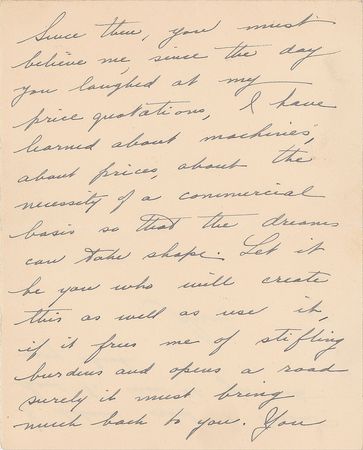 Since then, you must
believe me, since the day
you laughed at my
price quotations, I have
learned about machines,
about prices, about the
necessity of a commercial
basis so that the dreams
can take shape. Let it
be you who will create
this as well as use it,
if it frees me of stifling
burdens and opens a road
surely it must bring
much back to you. You